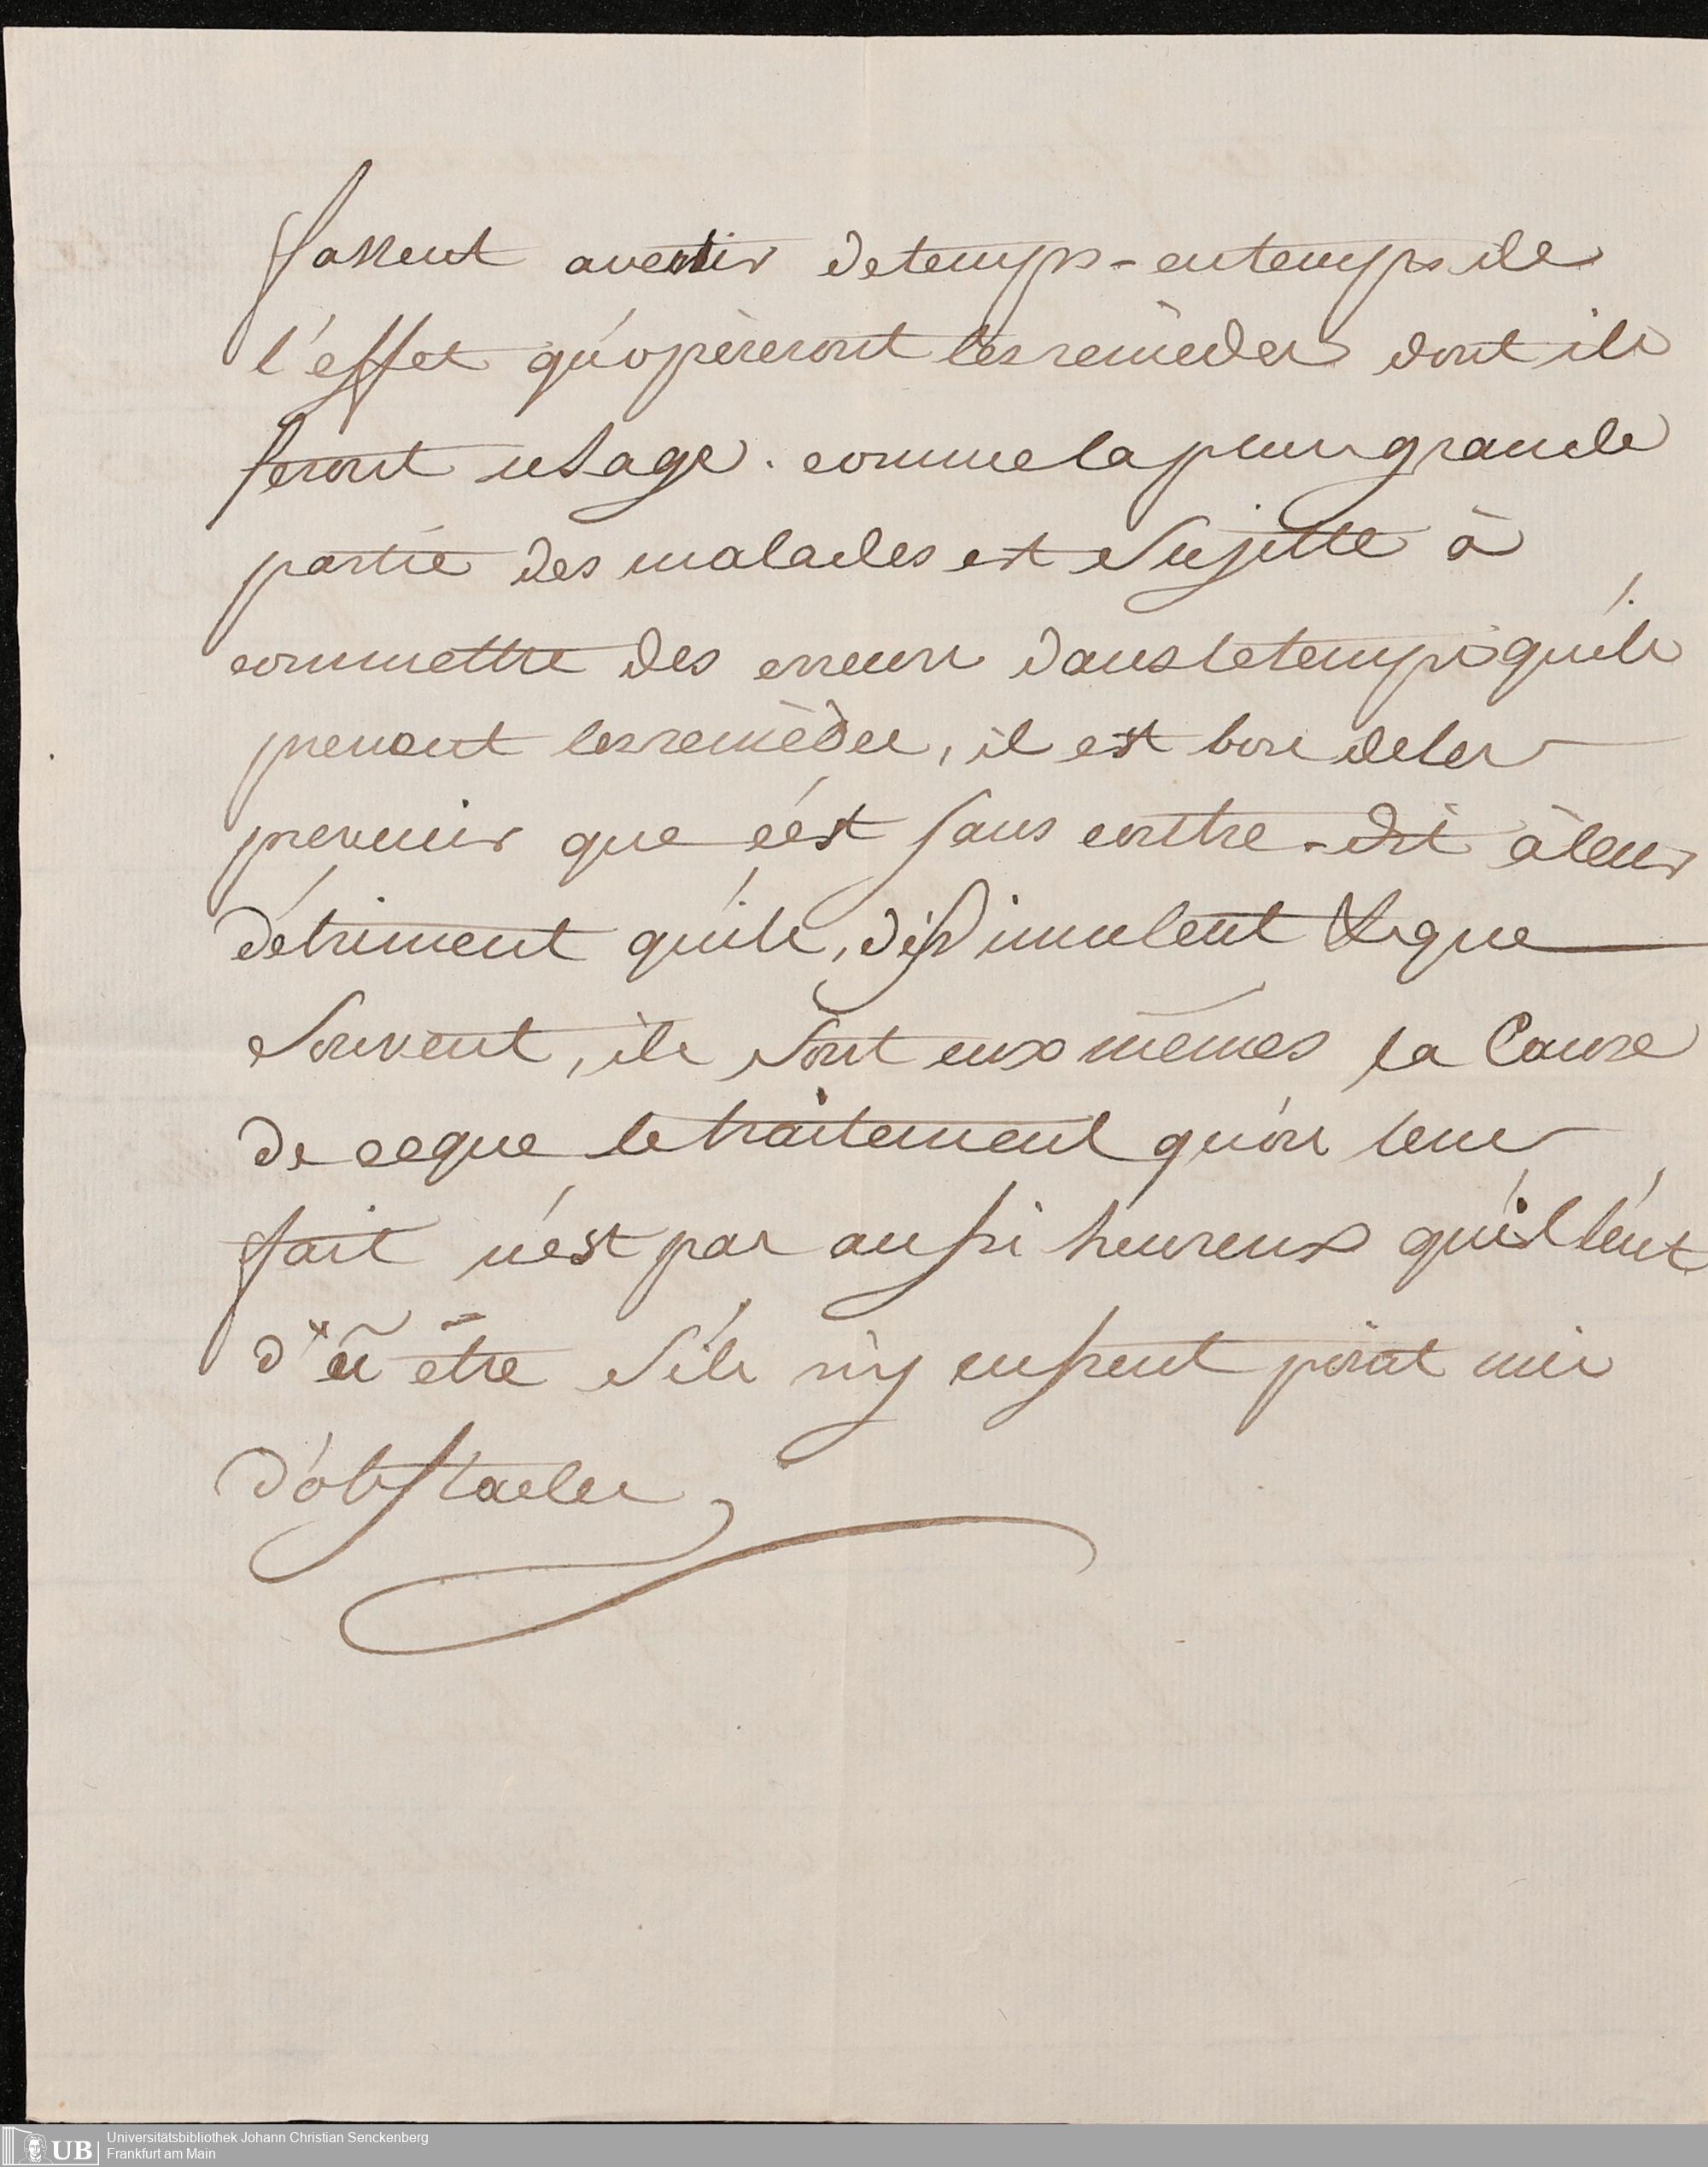 fassent avertir de temps-en temps de
l'effet qu'opèreront les remèdes dont ils
feront usage. comme la plus grande
partie des malades est sujette à
commettre des erreurs dans le temps qu'ils
prenent les remèdes, il est bon de les
prevenir que c'est sans contre-dit à leur
détriment qu'ils, dissimulent & que
souvent, ils sont eux mêmes la Cause
de ce que le traitement qu'on leur
fait n'est pas aussi heureux qu'il l'eut
dû être s'ils n'y eussent point mis
d'obstacles
UB Universitätsbibliothek Johann Christian Senckenberg
Frankfurt am Main